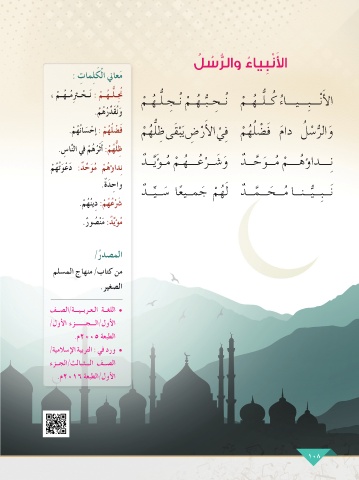 الأَنْبِيَاءُ والرُّسُلُ
الأَنْـبِـيــاءُ كُـلُّـهُـمْ نُـحِـبُّـهُـمْ نُـجِـلُّـهُـمْ
والرُّسْلُ دامَ فَضْلُهُمْ فِيْ الأَرْضِ يَبْقَى ظِلُّهُمْ
نِـداؤهُـمْ مُـوَحَّـدٌ وَشَـرْعُـهُـمْ مُـؤَيَّـدٌ
نَـبِـيُّـنـا مُـحَـمَّـدٌ لَهُمْ جَمِيعًا سَـيِّـدٌ
مَعاني الْكَلِماتِ :
نُجِـلُّـهُـمْ : نَـحْـتَرِمُـهُـمْ ،
وَنُقَدِّرُهُمْ.
فَضْلُهُمْ: إِحْسَانُهُمْ.
ظِلُّهُمْ: أَثَرُهُمْ في النَّاسِ.
نداؤهُمْ مُوَحَّدٌ: دَعْوَتُهُمْ
واحِدَةٌ.
شَرْعُهُمْ: دِينُهُمْ.
مُؤَيَّدٌ: مَنْصُورٌ.
المصدر/
من كتاب/ منهاج المسلم
الصغير.
• اللغة العربية/الصف
الأول/الجزء الأول/
الطبعة ٢٠٠٥م.
• ورد في : التربية الإسلامية/
الصف الثالث/الجزء
الأول/الطبعة ٢٠١٦م.
١٠٨